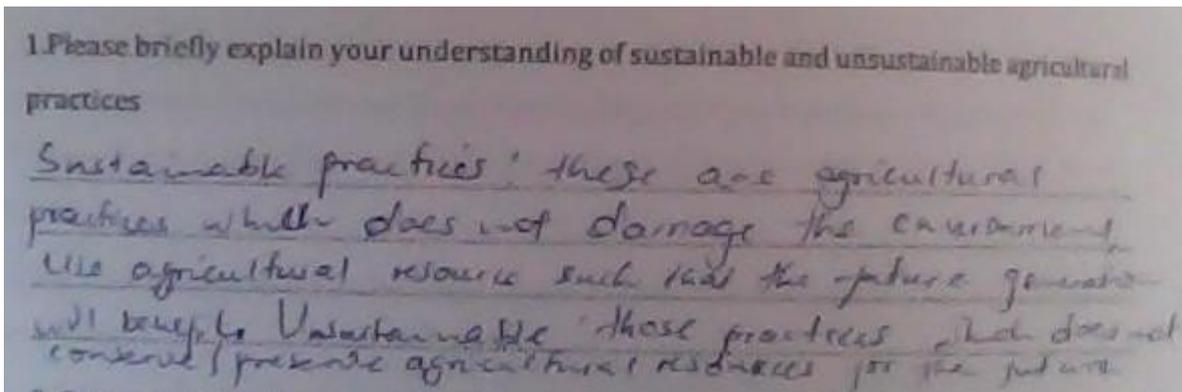 1.Please briefly explain your understanding of sustainable and unsustainable agricultural
practices
Sustainable practices: these are agricultural
practices which does not damage the environment,
Use agricultural resource such that the future generation
will benefit. Unsustainable those practices which does not
conserve / preserve agricultural resources for the future